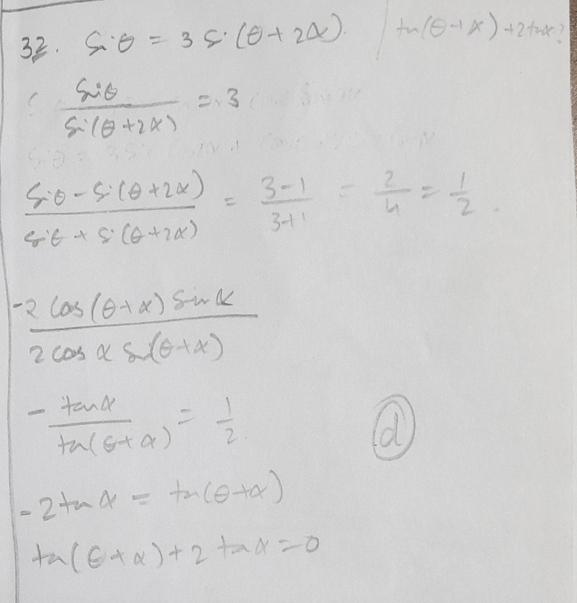 32. Sinθ = 3 Si(θ + 2α). | tan(θ+α) + 2tanα?
Sinθ / Si(θ+2α) = 3
Sinθ - Si(θ+2α) / Sinθ + Si(θ+2α) = 3-1 / 3+1 = 2/4 = 1/2.
-2 Cos(θ+α) Sinα / 2 cos α Sin(θ+α)
- tanα / tan(θ+α) = 1/2.
(d)
-2tanα = tan(θ+α)
tan(θ+α) + 2 tanα = 0